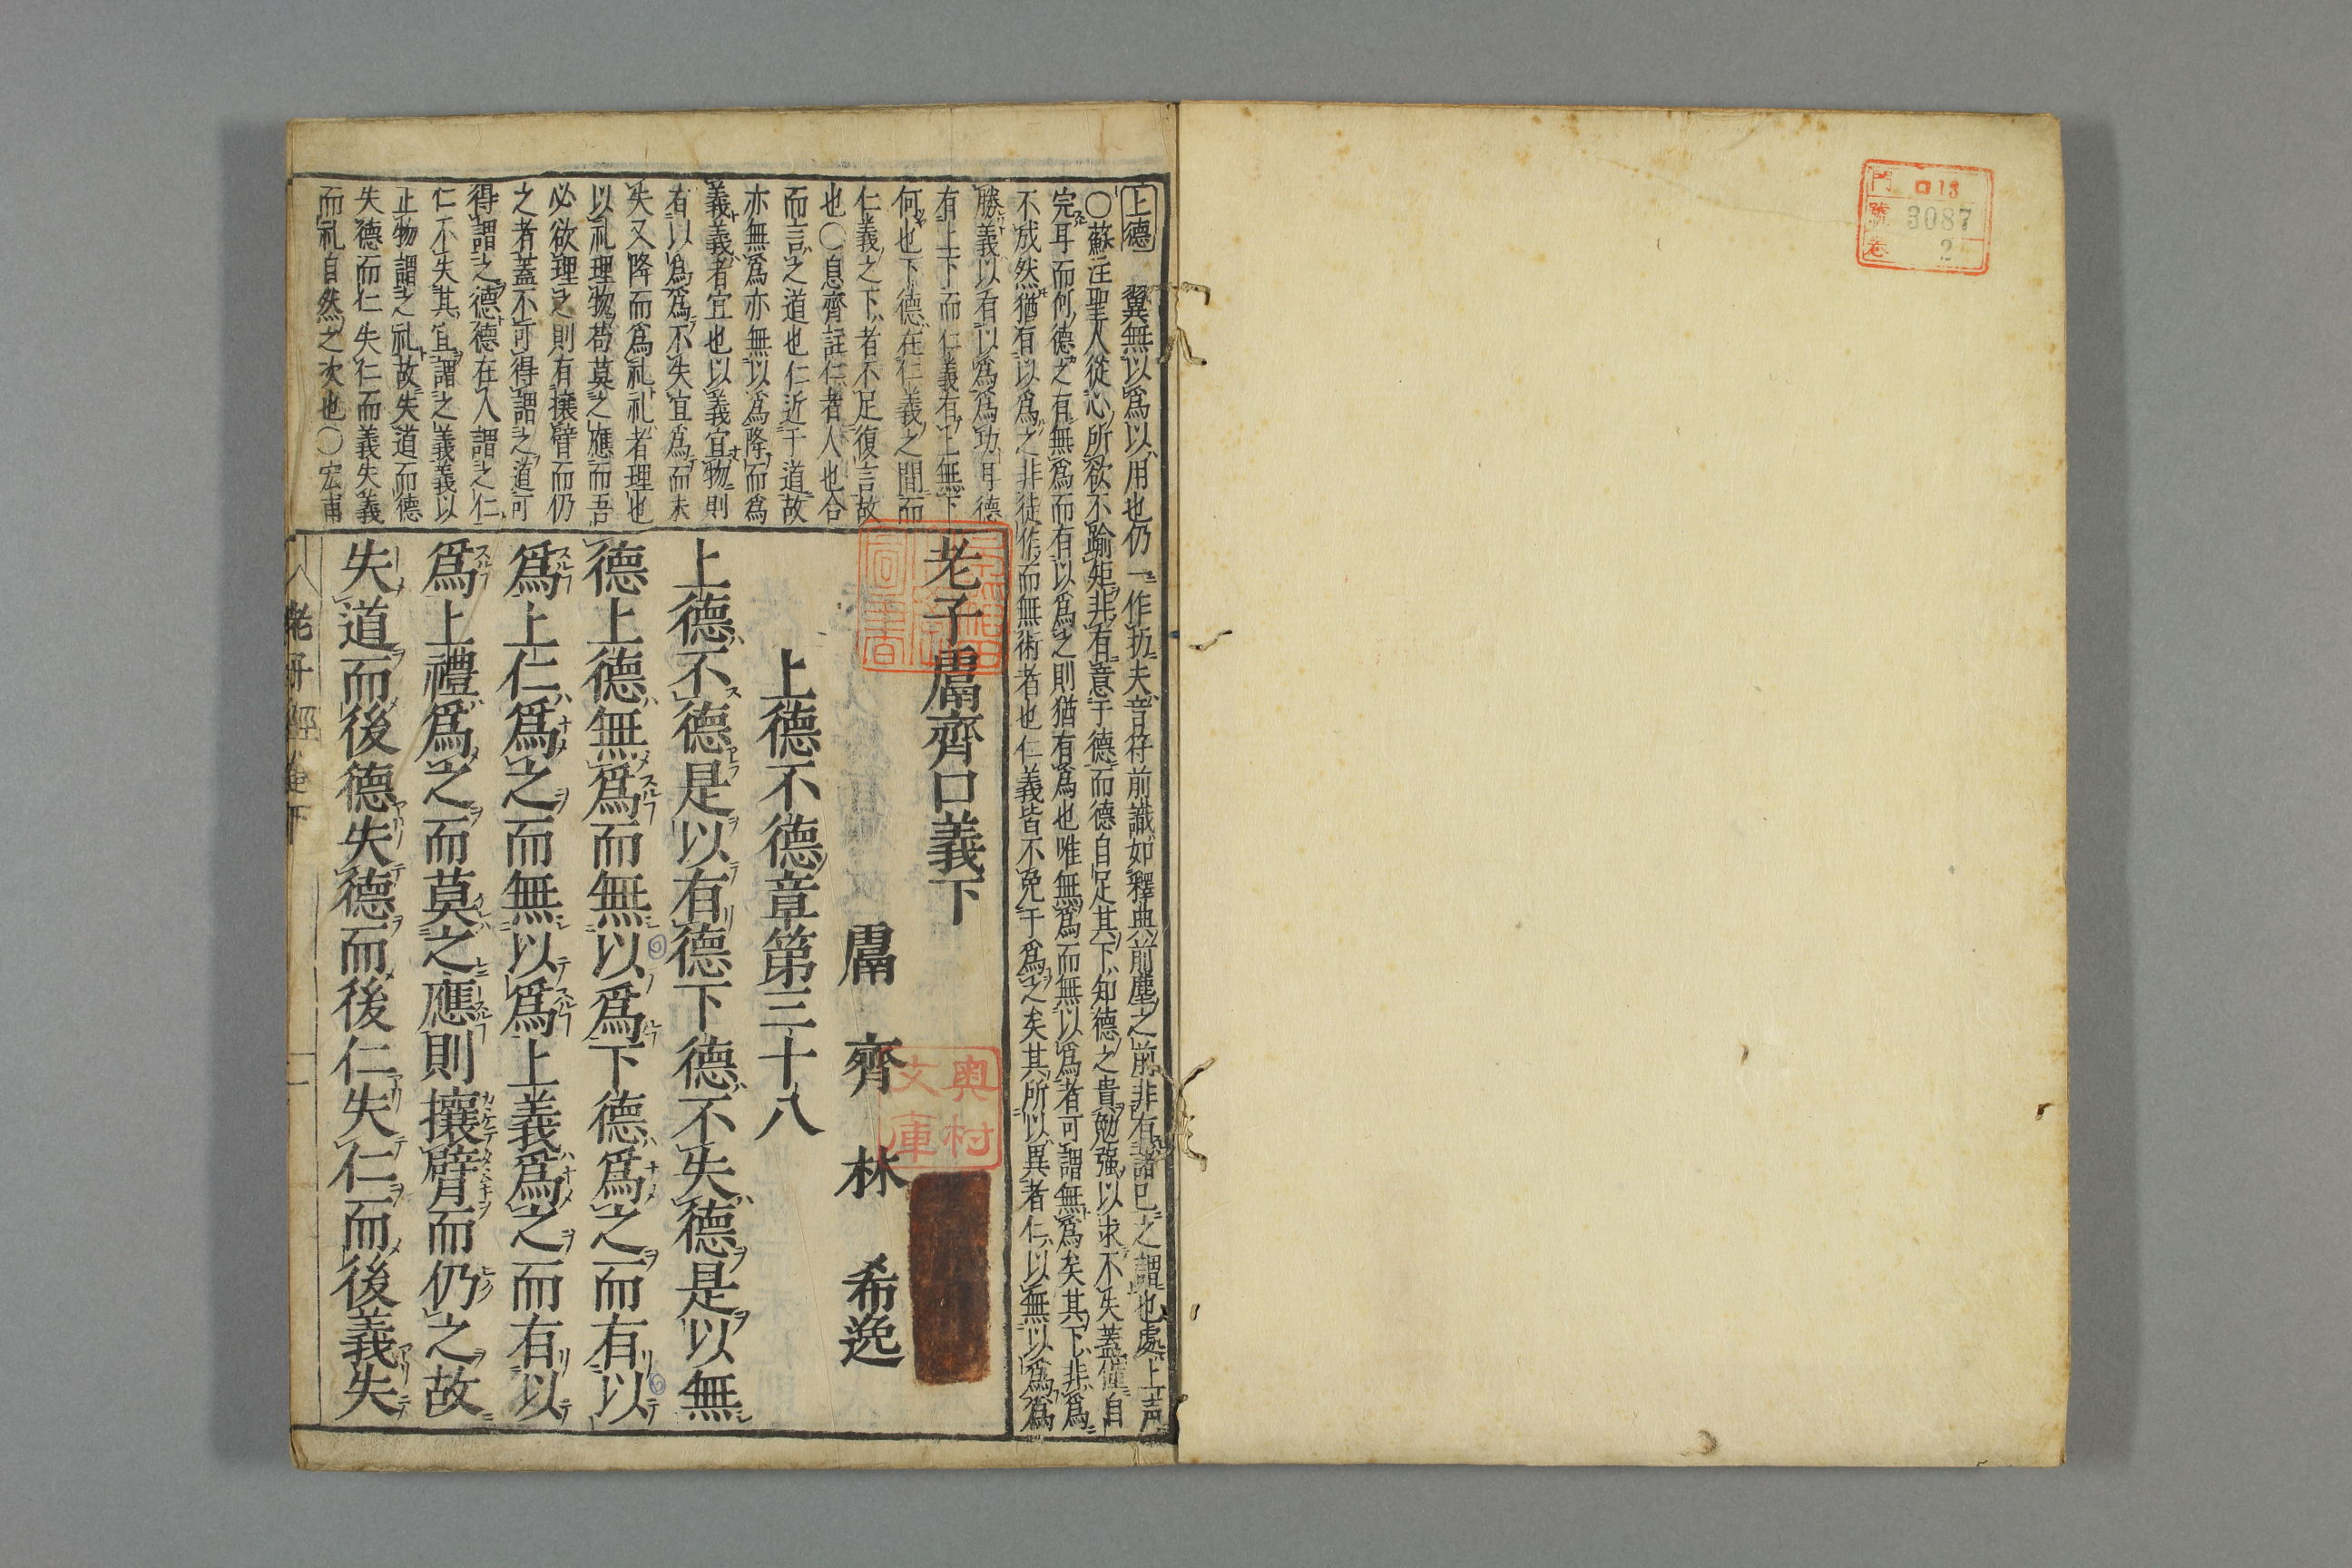 門 ロ13
號 3087
巻 2
上德 翼無以爲以用也仍一作扔夫音符前識如釋典前塵之前非有諸已之謂也處上声
○蘇注聖人從心所欲不踰矩非有意于德而德自足其下知德之貴勉強以求不失蓋僅自
完耳而何德之有無爲而有以爲之則猶有爲也唯無爲而無以爲者可謂無爲矣其下非爲
不成然猶有以爲之非徒作而無術者也仁義皆不免于爲之矣其所以異者仁以無以爲爲
勝義以有以爲爲功耳德
有上下而仁義有上無下
何也下德在仁義之間而
仁義之下者不足復言故
也○息齊註仁者人也合
而言之道也仁近于道故
亦無爲亦無以爲降而爲
義義者宜也以義宜物則
有以爲爲不失宜爲而未
失又降而爲礼礼者理也
以礼理物苟莫之應而吾
必欲理之則有攘臂而仍
之者蓋不可得謂之道可
得謂之德德在人謂之仁
仁不失其宜謂之義義以
止物謂之礼故失道而德
失德而仁失仁而義失義
而礼自然之次也○宏甫
老子鬳齊口義下
鬳齊林希逸
上德不德章第三十八
上德不德是以有德下德不失德是以無
德上德無爲而無以爲下德爲之而有以
爲上仁爲之而無以爲上義爲之而有以
爲上禮爲之而莫之應則攘臂而仍之故
失道而後德失德而後仁失仁而後義失
奥村
文庫
老子經 卷下